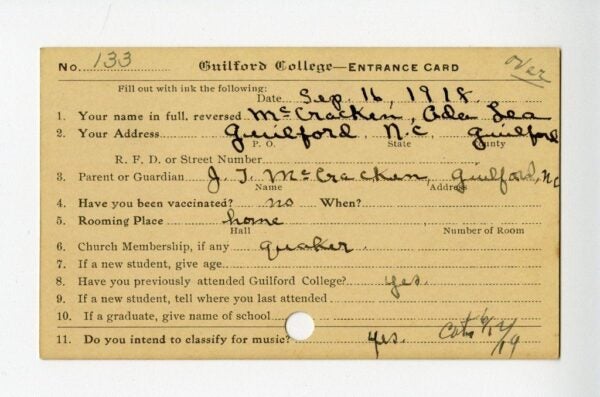 No. 133 Guilford College—ENTRANCE CARD Over
Fill out with ink the following:
Date Sep. 16, 1918
1. Your name in full, reversed McCracken, Ada Lea
2. Your Address Guilford, N.C. Guilford
P. O. State County
R. F. D. or Street Number
3. Parent or Guardian J. T. McCracken, Guilford, NC
Name Address
4. Have you been vaccinated? no When?
5. Rooming Place home
Hall Number of Room
6. Church Membership, if any quaker.
7. If a new student, give age
8. Have you previously attended Guilford College? yes.
9. If a new student, tell where you last attended
10. If a graduate, give name of school
11. Do you intend to classify for music? yes.